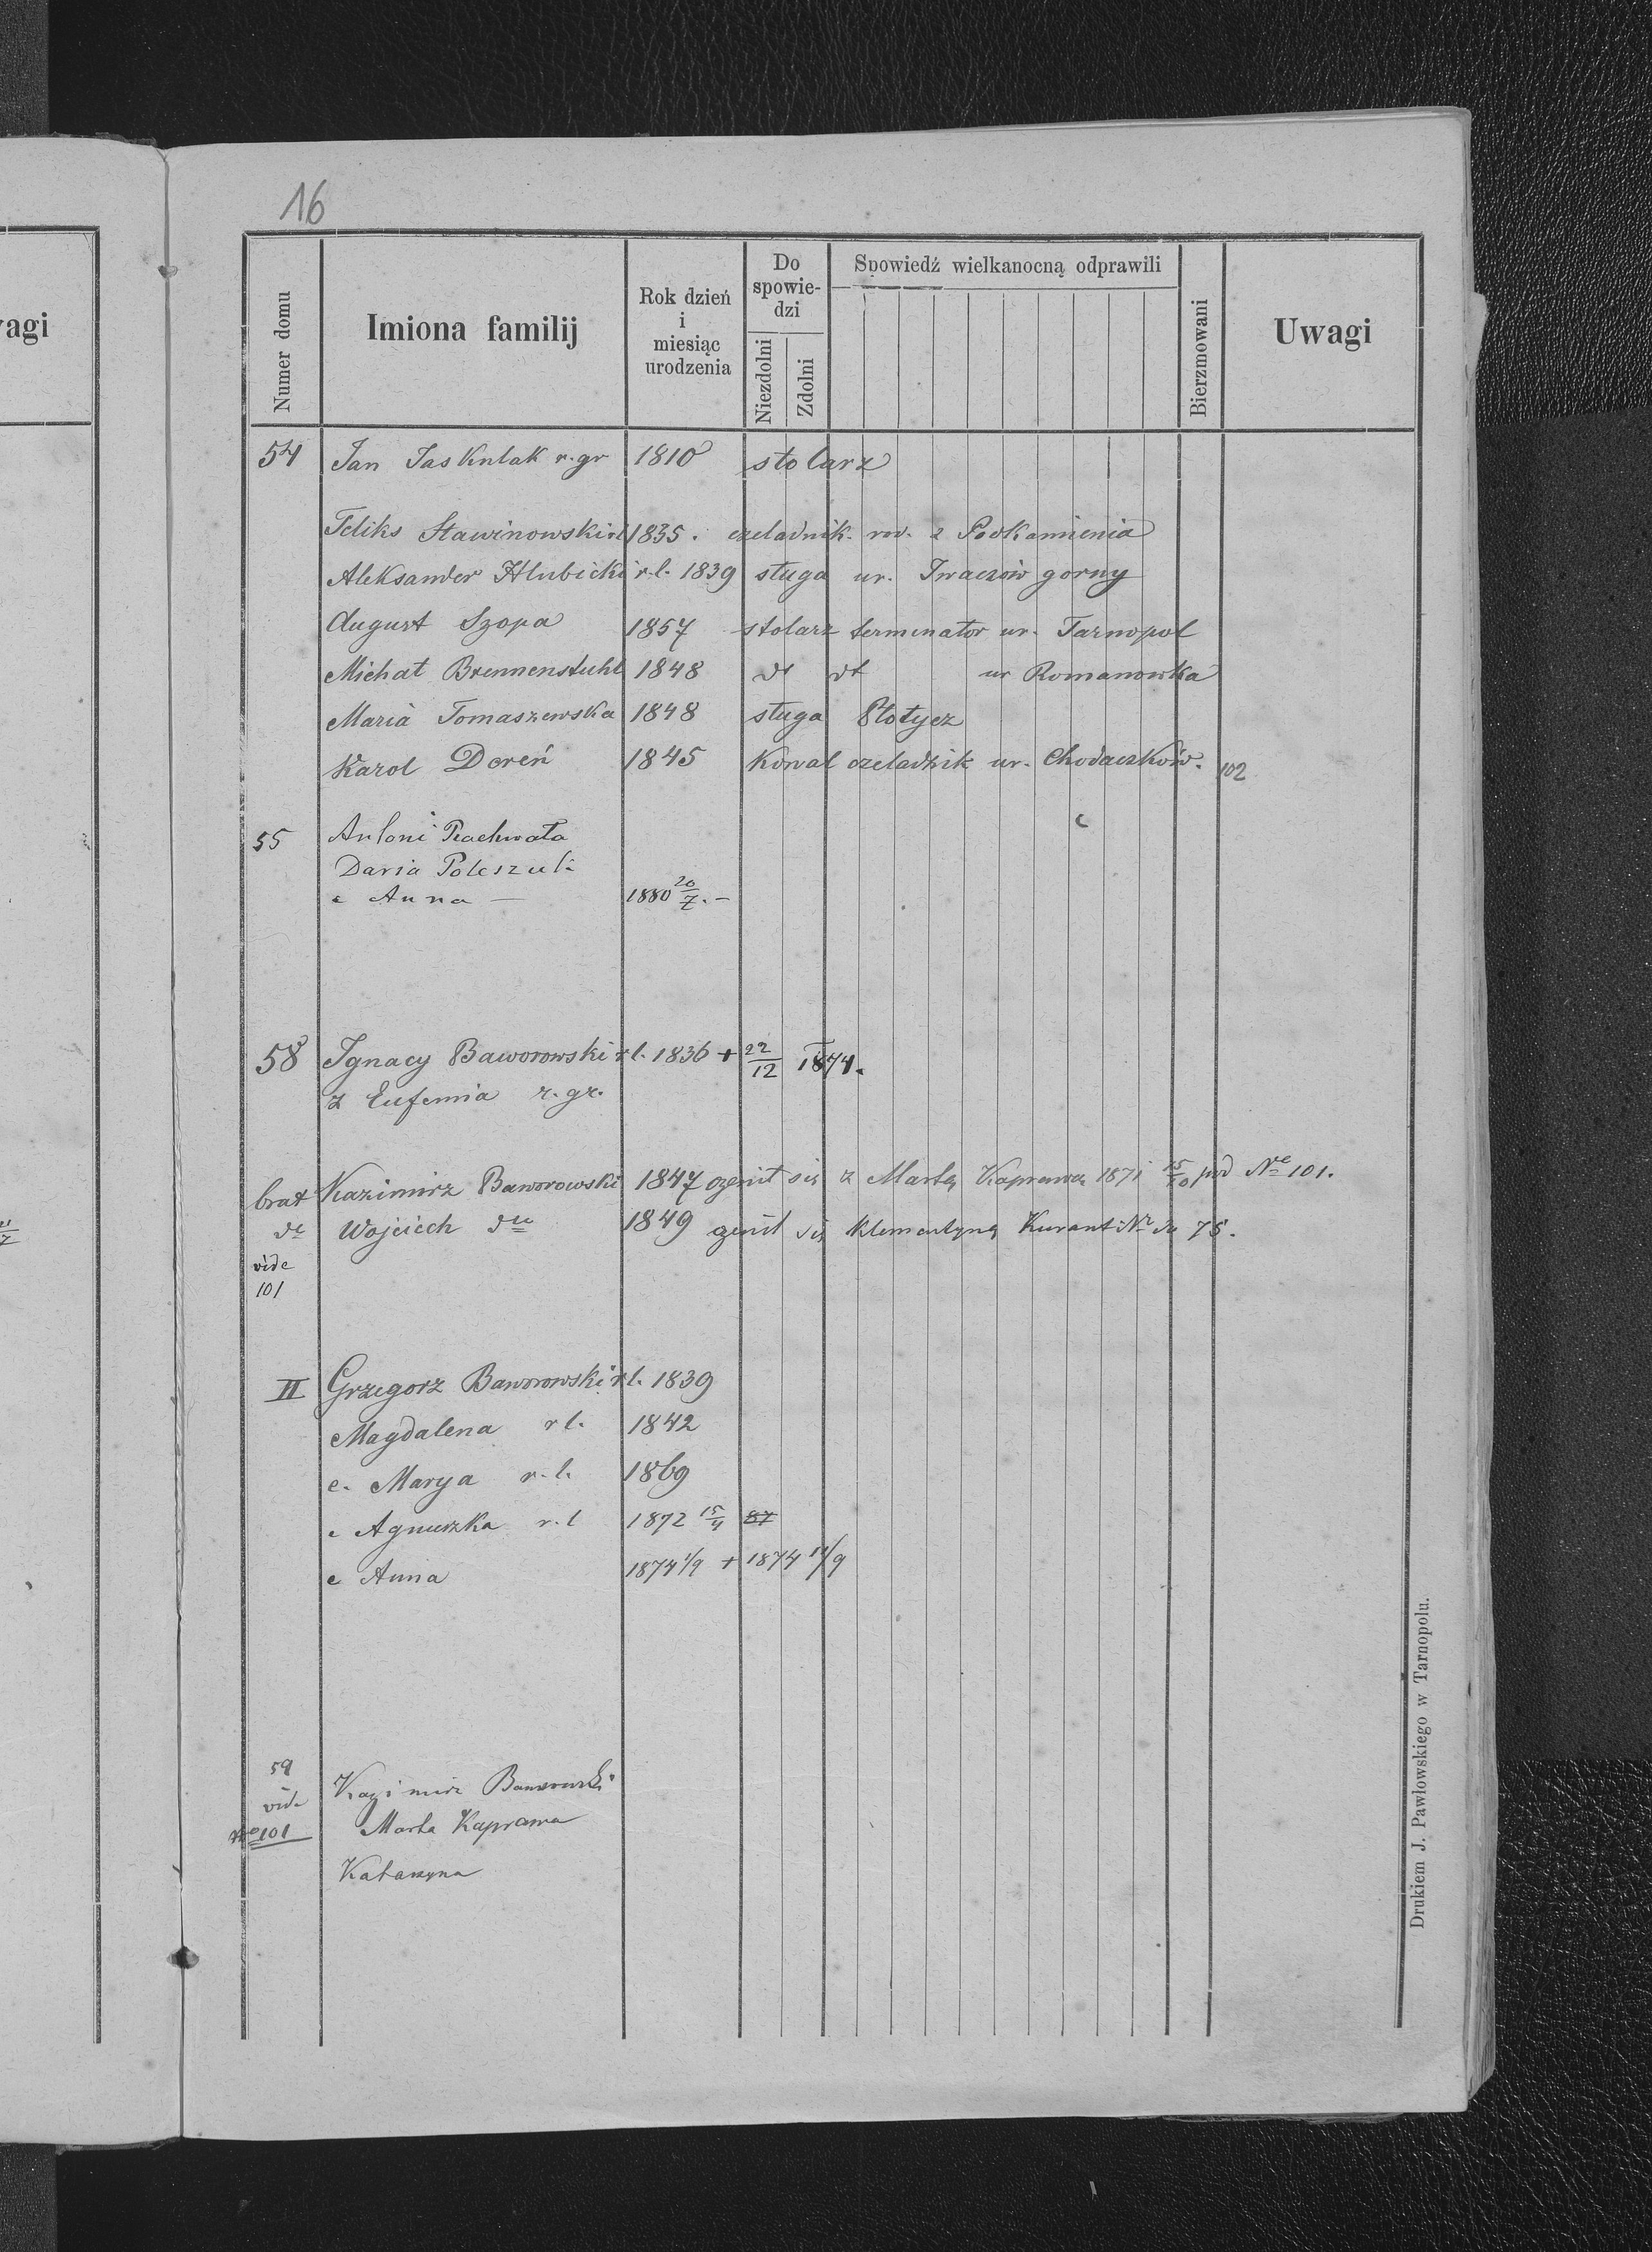 16
vagi
Numer domu
Imiona familij
Rok dzień i miesiąc urodzenia
Do spowiedzi
Niezdolni
Zdolni
Spowiedź wielkanocną odprawili
Bierzmowani
Uwagi
54 Jan Jaskulak r. gr 1810 stolarz
Feliks Stawinowski rl 1835. czeladnik. rod. z Podkamienia
Aleksander Hlubicki r.l. 1839 sługa ur. Iwaczów gorny
August Szopa 1857 stolarz terminator ur. Tarnopol
Michał Brennenstuhl 1848 dt dt ur Romanowka
Maria Tomaszewska 1848 sługa Płotycz
Karol Doreń 1845 Kowal czeladnik ur. Chodaczków. 102
55 Antoni Pachwała
Daria Poleszuk
c Anna — 1880 20/7. –
58 Ignacy Baworowski rl. 1836 + 22/12 1874.
z Eufemia r. gr.
brat Kazimirz Baworowski 1847 ożenił się z Martą Kaprawą 1871 15/10 pod No 101.
dto Wojciech dto 1849 ożenił się Klementyną Kurant Nr do 75.
vide
101
II Grzegorz Baworowski rl. 1839
Magdalena rl. 1842
c. Marya r.l. 1869
c Agnieszka r.l 1872 15/4 87
c Anna 1874 1/9 + 1874 11/9
59 Kazimirz Baworowski
vide
No 101 Marta Kaprawa
Katarzyna
Drukiem J. Pawłowskiego w Tarnopolu.